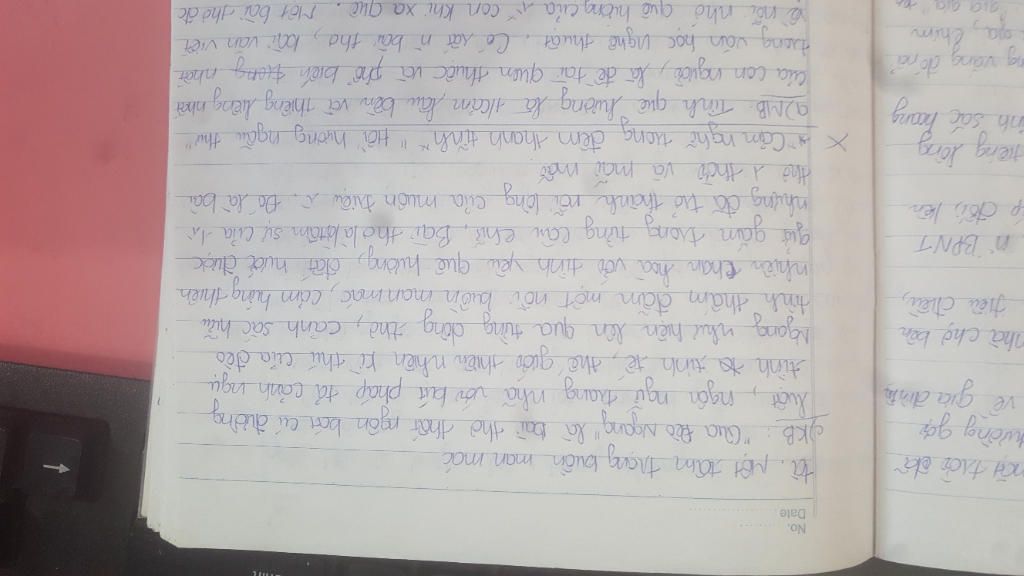 hường gợi
về gia đình
nhà chợ bên
tiêu điều,
n` BPNT
tiếng lòng
No.
Date
tả. Một tâm trạng buồn man mác
c) KB: "Qua Đèo Ngang" là bài thơ thất ngôn bát cú đường
luật, ngôn ngữ trang nhã với bút pháp tả cảnh ngụ
tình tinh tế, thế giới thiên nhiên kì thú của đèo
Ngang như hiện lên qua từng dòng thơ, cảnh sắc hữu
tình thấm đẫm một nỗi buồn man mác, cảm hứng thiên
nhiên chan hoà với tình yêu quê hương, đất nước được
gửi gắm trong từng câu chữ. Bài thơ là tâm sự của 1
nhưng đã trở thành nỗi lòng của muôn triệu Đó là bài
thơ 1 thời và mãi mãi
* "Cảm nghĩ trong đêm thanh tĩnh" "Hồi hương ngẫu thư"
a) MB: Tình quê hương là thầm lâu bền và thiêng liêng nhất
của con người, là đề tài quen thuộc và phổ biến trong nhất
trong văn học nghệ thuật. Có rất n` bài thơ, bài văn viết
về nỗi nhớ quê hương của con khi xa quê. Một bài thơ đc